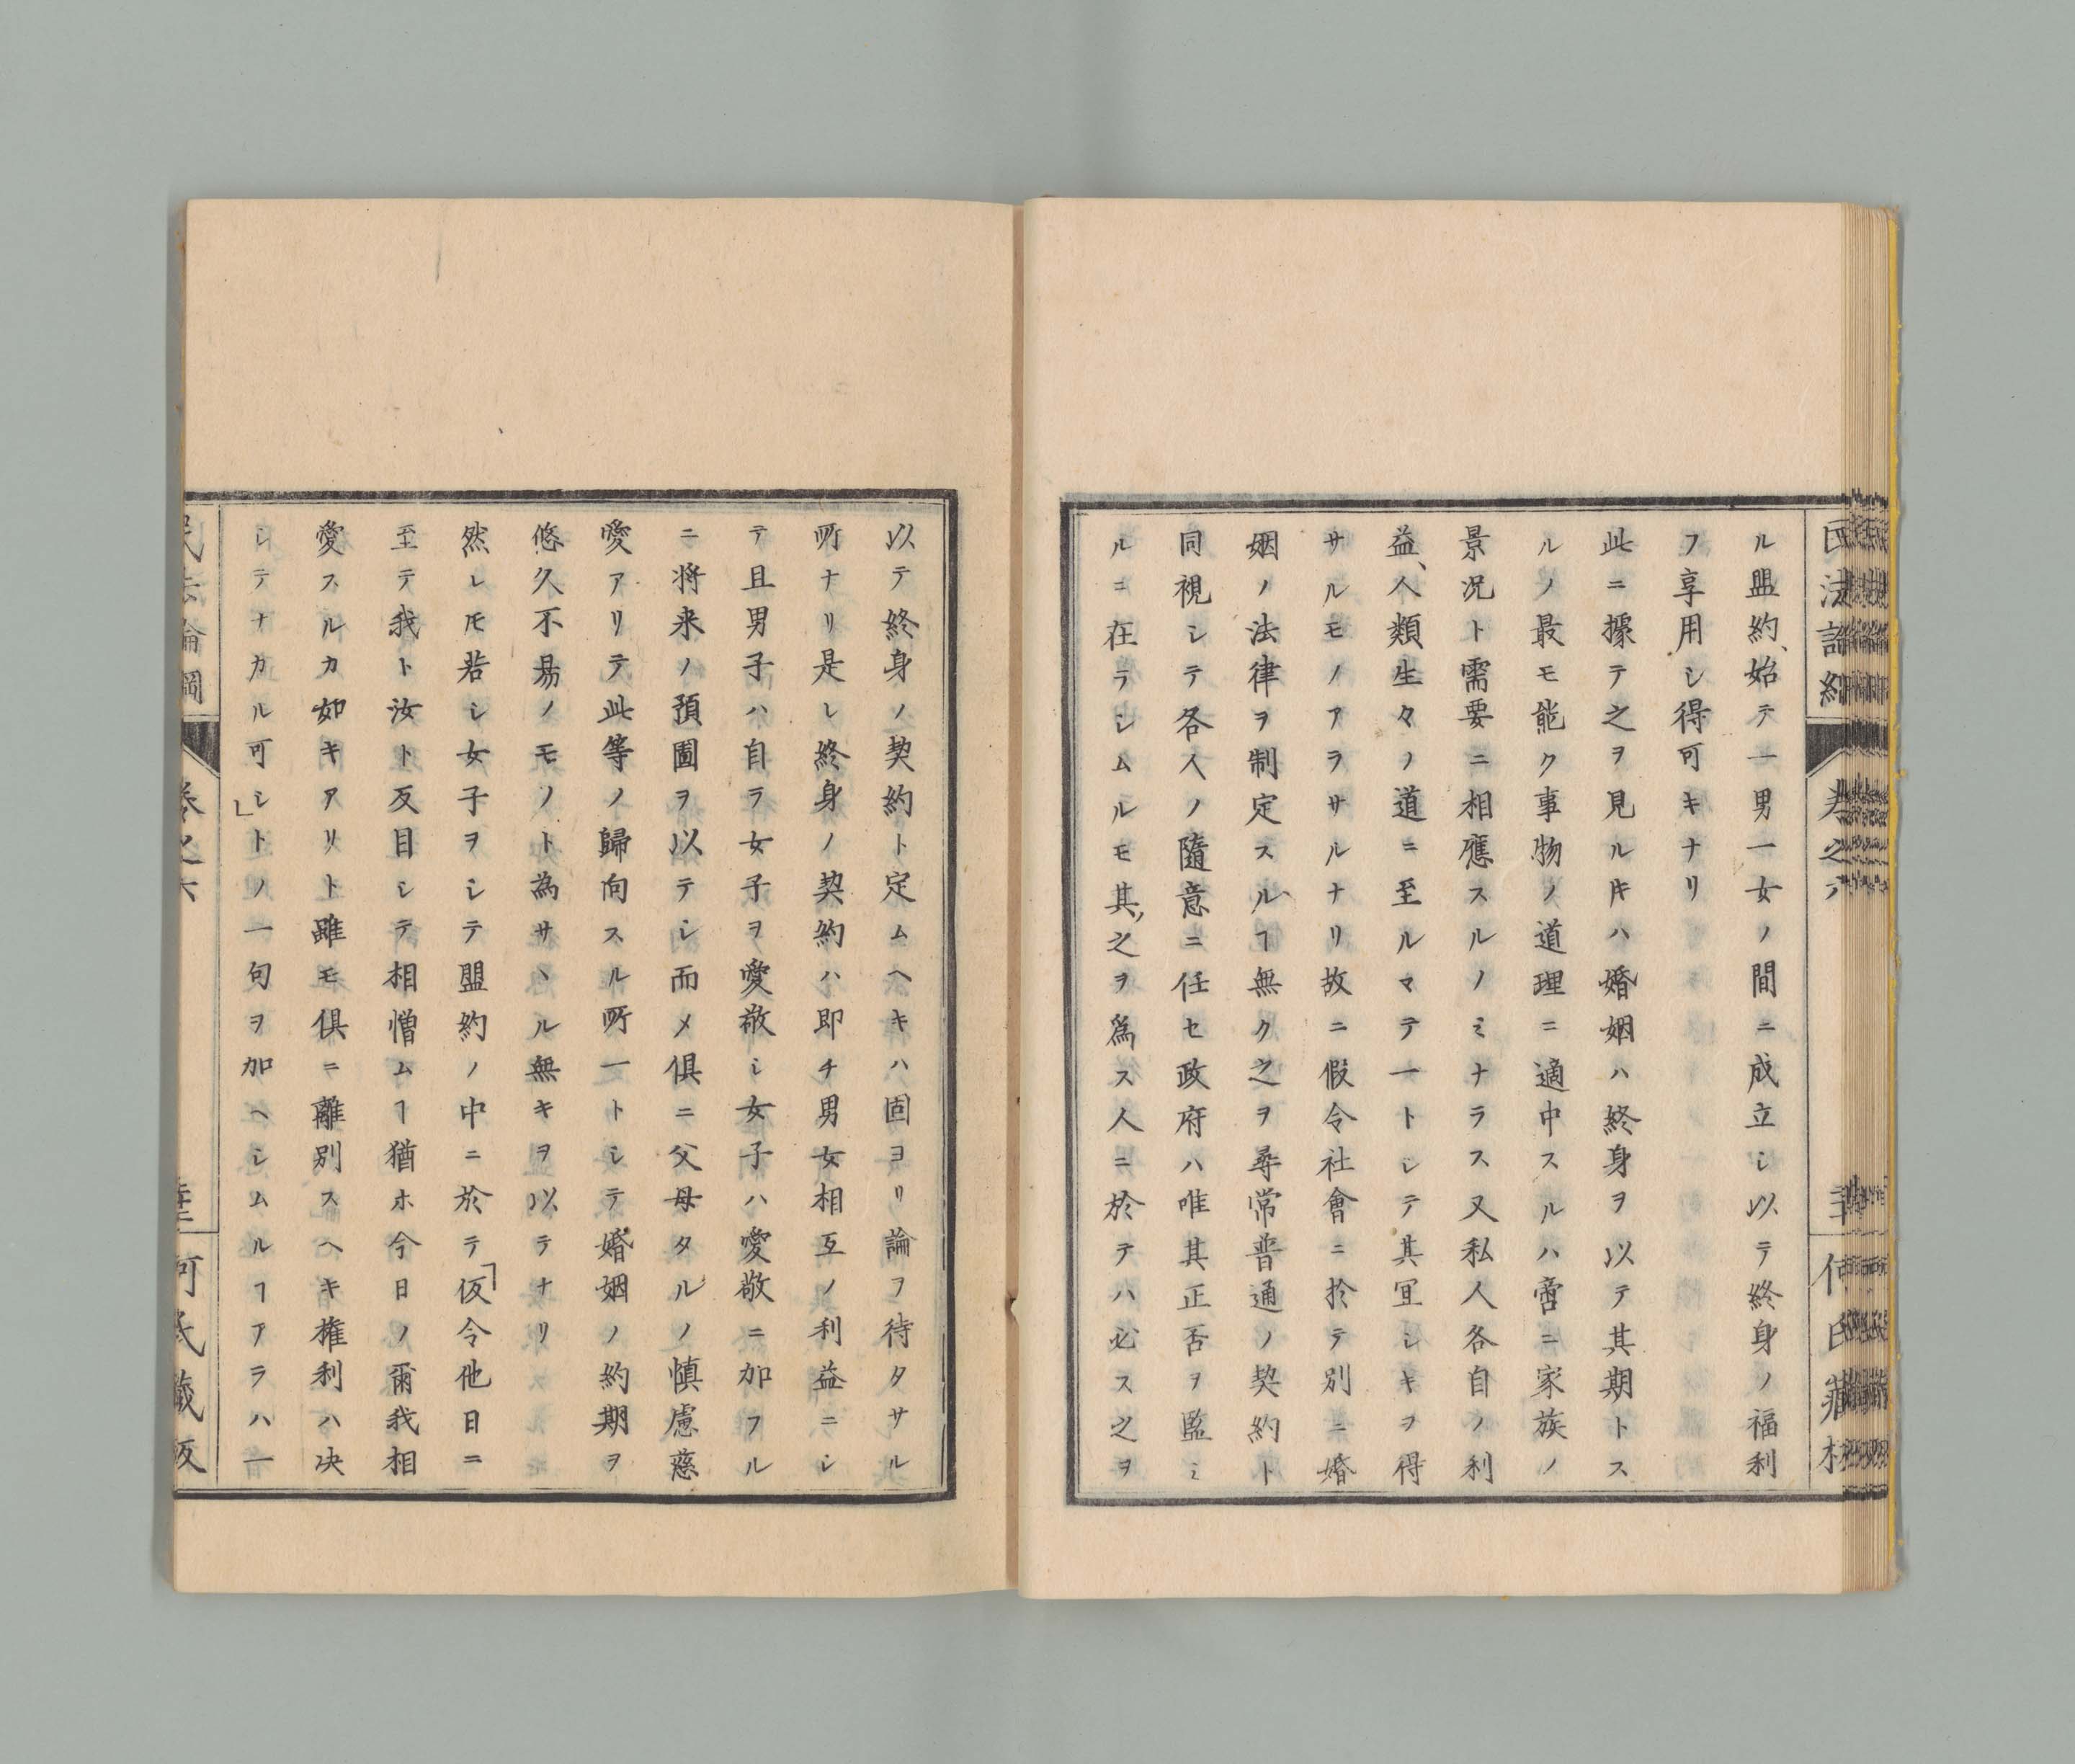 ル盟約、始テ一男一女ノ間ニ成立シ以テ終身ノ福利
ヲ享用シ得可キナリ
此ニ據テ之ヲ見ルㇳキハ婚姻ハ終身ヲ以テ其期トス
ルノ最モ能ク事物ノ道理ニ適中スルハ啻ニ家族ノ
景況ト需要ニ相應スルノミナラス又私人各自ノ利
益、人類生々ノ道ニ至ルマテ一トシテ其冝シキヲ得
サルモノアラサルナリ故ニ假令社會ニ於テ別ニ婚
姻ノ法律ヲ制定スルヿ無ク之ヲ尋常普通ノ契約ト
同視シテ各人ノ隨意ニ任セ政府ハ唯其正否ヲ監ミ
ルニ在ラシムルモ其、之ヲ爲ス人ニ於テハ必ス之ヲ
以テ終身ノ契約ト定ムヘキハ固ヨリ論ヲ待タサル
所ナリ是レ終身ノ契約ハ即チ男女相互ノ利益ニシ
テ且男子ハ自ラ女子ヲ愛敬シ女子ハ愛敬ニ加フル
ニ将来ノ預圖ヲ以テシ而メ俱ニ父母タルノ慎慮慈
愛アリテ此等ノ歸向スル所一トシテ婚姻ノ約期ヲ
悠久不易ノモノト為サヽル無キヲ以テナリ
然レ𪜈若シ女子ヲシテ盟約ノ中ニ於テ「仮令他日ニ
至テ我ト汝ト反目シテ相憎ムヿ猶ホ今日ノ爾我相
愛スルカ如キアリト雖モ俱ニ離別スヘキ権利ハ决
シテナカル可シ」トノ一句ヲ加ヘシムルヿアラハ一
民法論綱
巻之六
何氏藏板